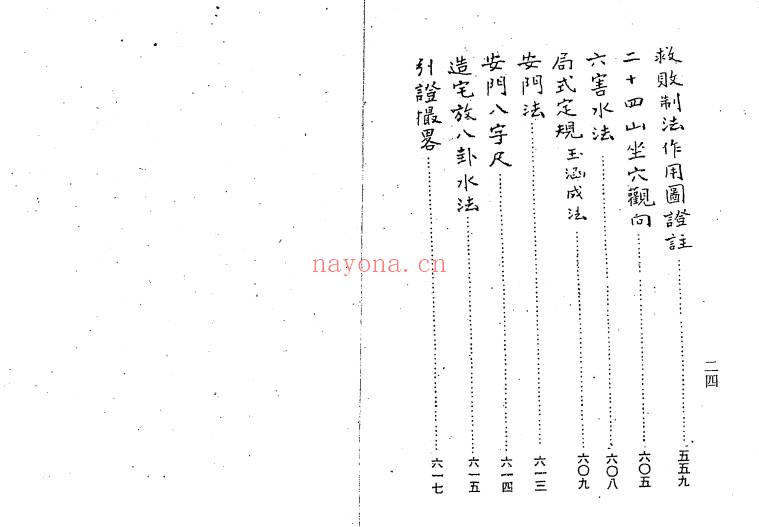 救敗制法作用圖證註 五五九
二十四山坐穴觀向 六〇五
六害水法 六〇八
局式定規玉涵成法 六〇九
安門法 六一三
安門八字尺 六一四
造宅放八卦水法 六一五
引證撮畧 六一七
二四
nayona.cn